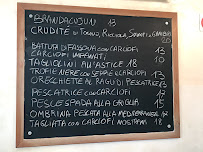 BRANDACUJUN 13
CRUDITÈ DI TONNO, RICCIOLA, SCAMPI E GAMBERO
20
BATTUTA DI FASSONA CON CARCIOFI 13
CARCIOFI IMPANATI 10
TAGLIOLINI ALL'ASTICE 18
TROFIE NERE CON SEPPIE E CARCIOFI 13
ORECCHIETTE AL RAGÙ DI PESCATRICE 13
PESCATRICE CON CARCIOFI 12
PESCE SPADA ALLA GRIGLIA 15
OMBRINA PESCATA ALLA MEDITERRANEA 17
TAGLIATA CON CARCIOFI NOSTRANI 18